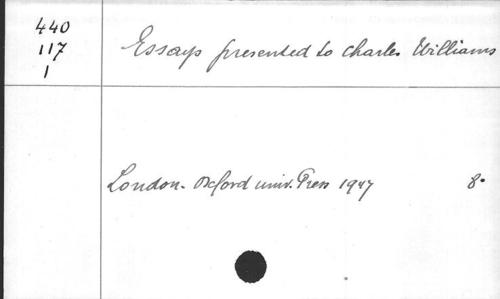 440
117
1
Essays presented to Charles Williams
London. Oxford univ. Press 1947 8°